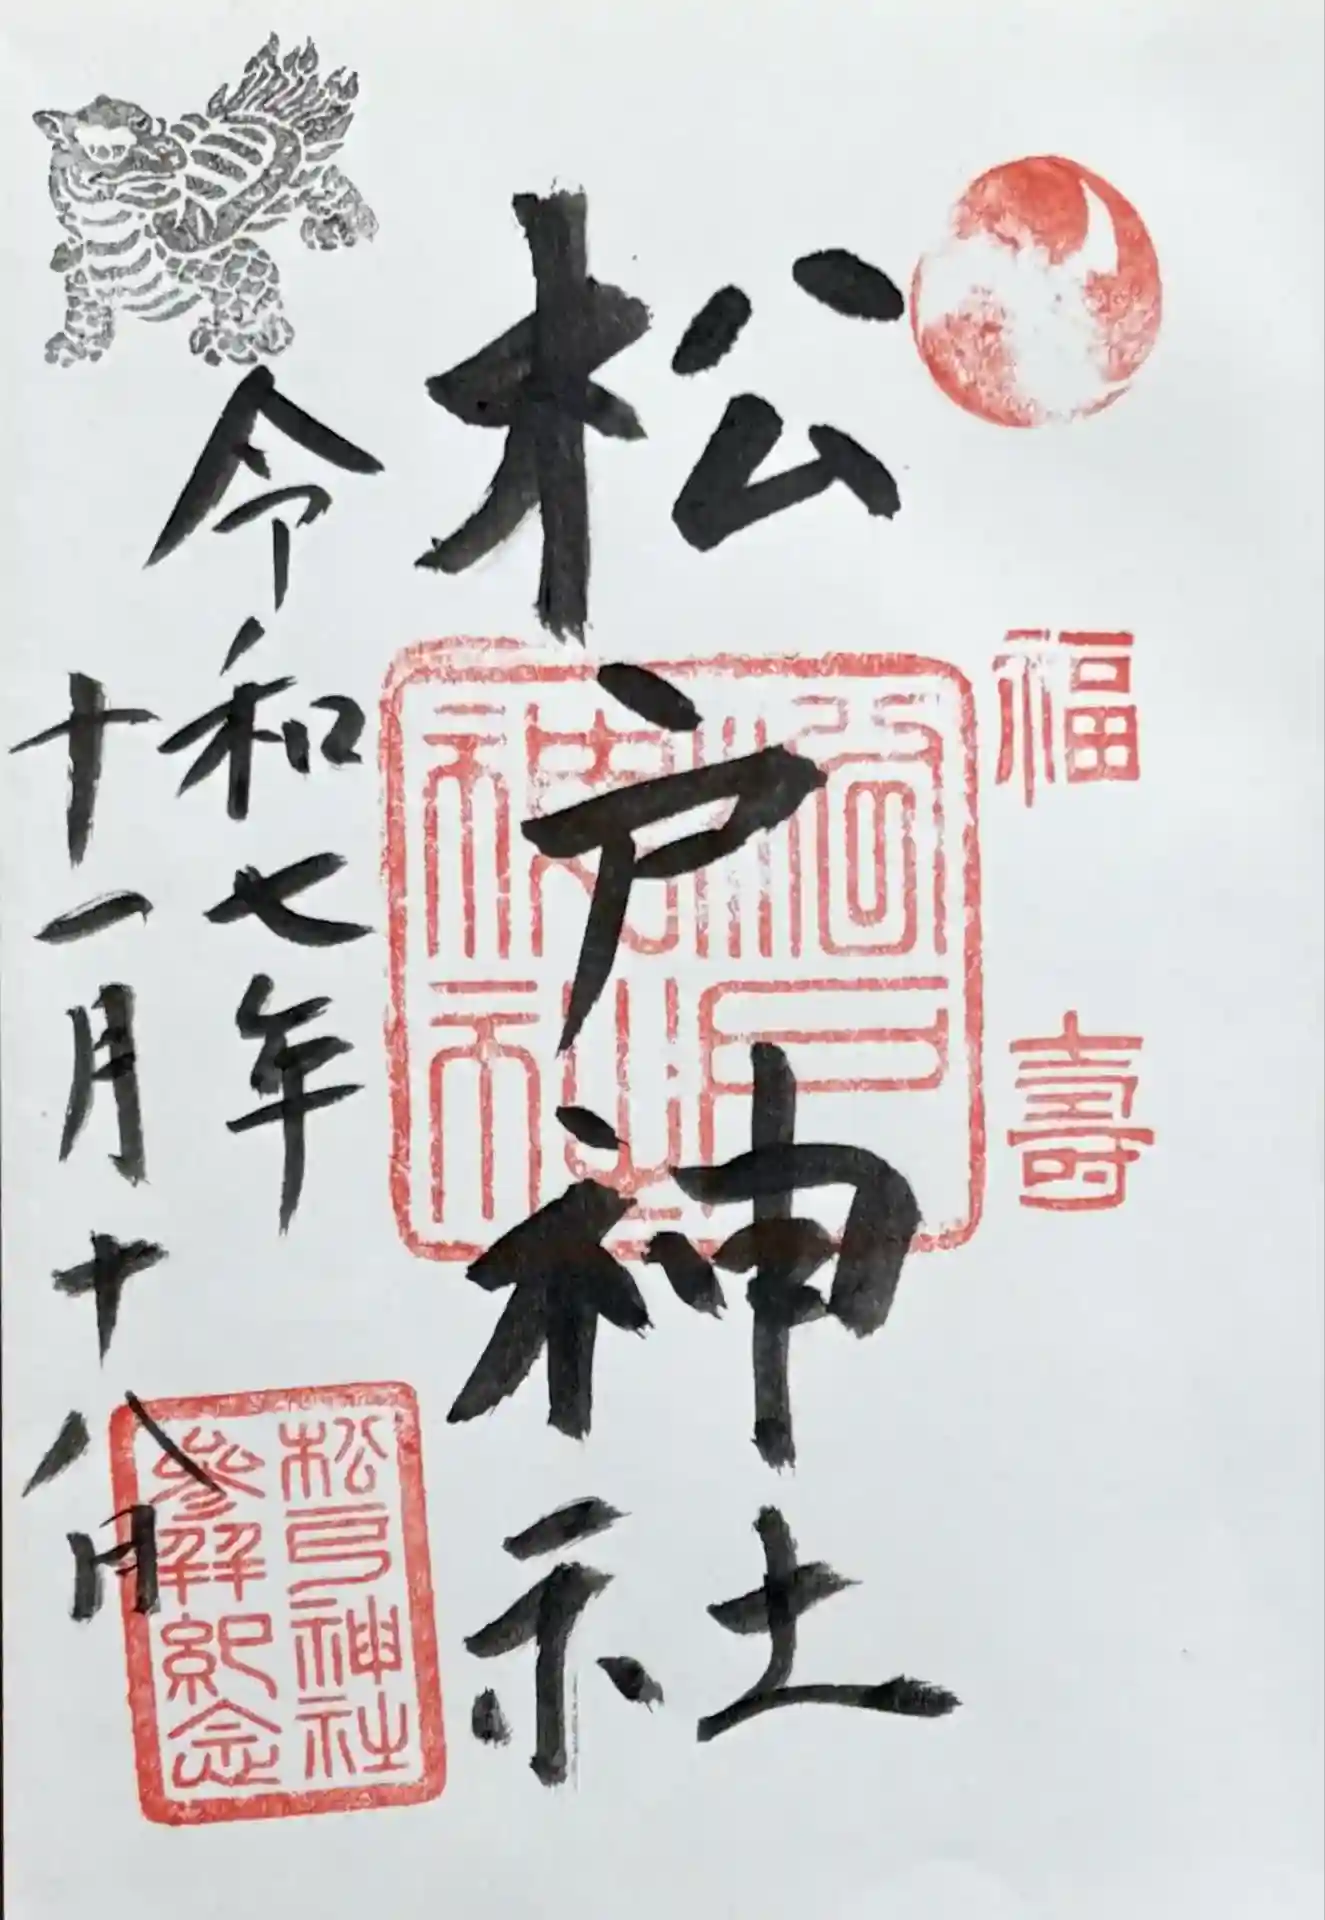 福壽
松戸神社
松戸神社
令和七年
十一月十八日
松戸神社
參拜紀念